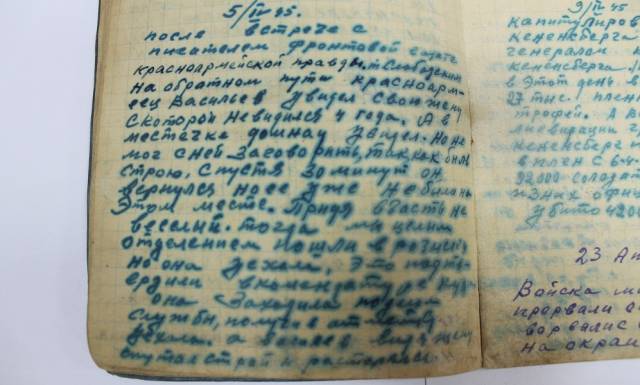 5/IV 45.
после встречи с
писателем фронтовой газете
красноармейской правды, т. Слободским
на обратном пути красноарм-
еец Васильев увидел свою жену
с которой не виделся 4 года. А в
местечке увидел. Но не
мог с ней заговорить, так как был в
строю. Спустя 30 минут он
вернулся но ее уже не было на
этом месте. Придя в часть не
веселий. тогда мы целим
отделением пошли в розиск
но она уехала. Это подтв-
ердили в комендатуре куда
она заходила
службы,
уехала. а
9/IV 45
капитулиров
кененсберга
генералом
кененсберга
в этот день в
27 тыс. плен
трофеи. А в
ликвидации
кененсберг
в плен с 6-
92000 солдат
из них офи
убито 420
23 Ап
Войска
прорвали
ворвалис
на окраи